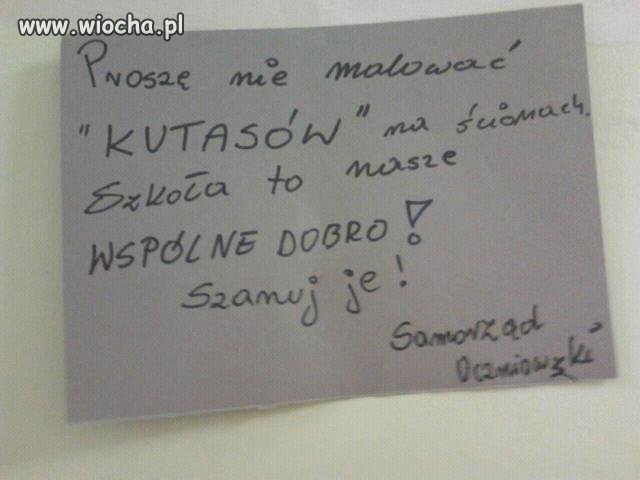 www.wiocha.pl
Proszę nie malować
"KUTASÓW" na ścianach.
Szkoła to nasze
WSPÓLNE DOBRO!
Szanuj je!
Samorząd
Uczniowski